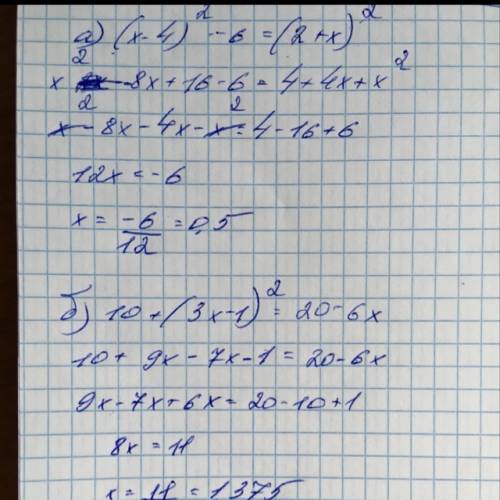 а) (x-4)² - 6 = (2+x)²
x² - 8x + 16 - 6 = 4 + 4x + x²
x² - 8x - 4x - x² = 4 - 16 + 6
12x = -6
x = -6/12 = 0,5
б) 10 + (3x-1)² = 20 - 6x
10 + 9x - 7x - 1 = 20 - 6x
9x - 7x + 6x = 20 - 10 + 1
8x = 11
x = 11 = 1375